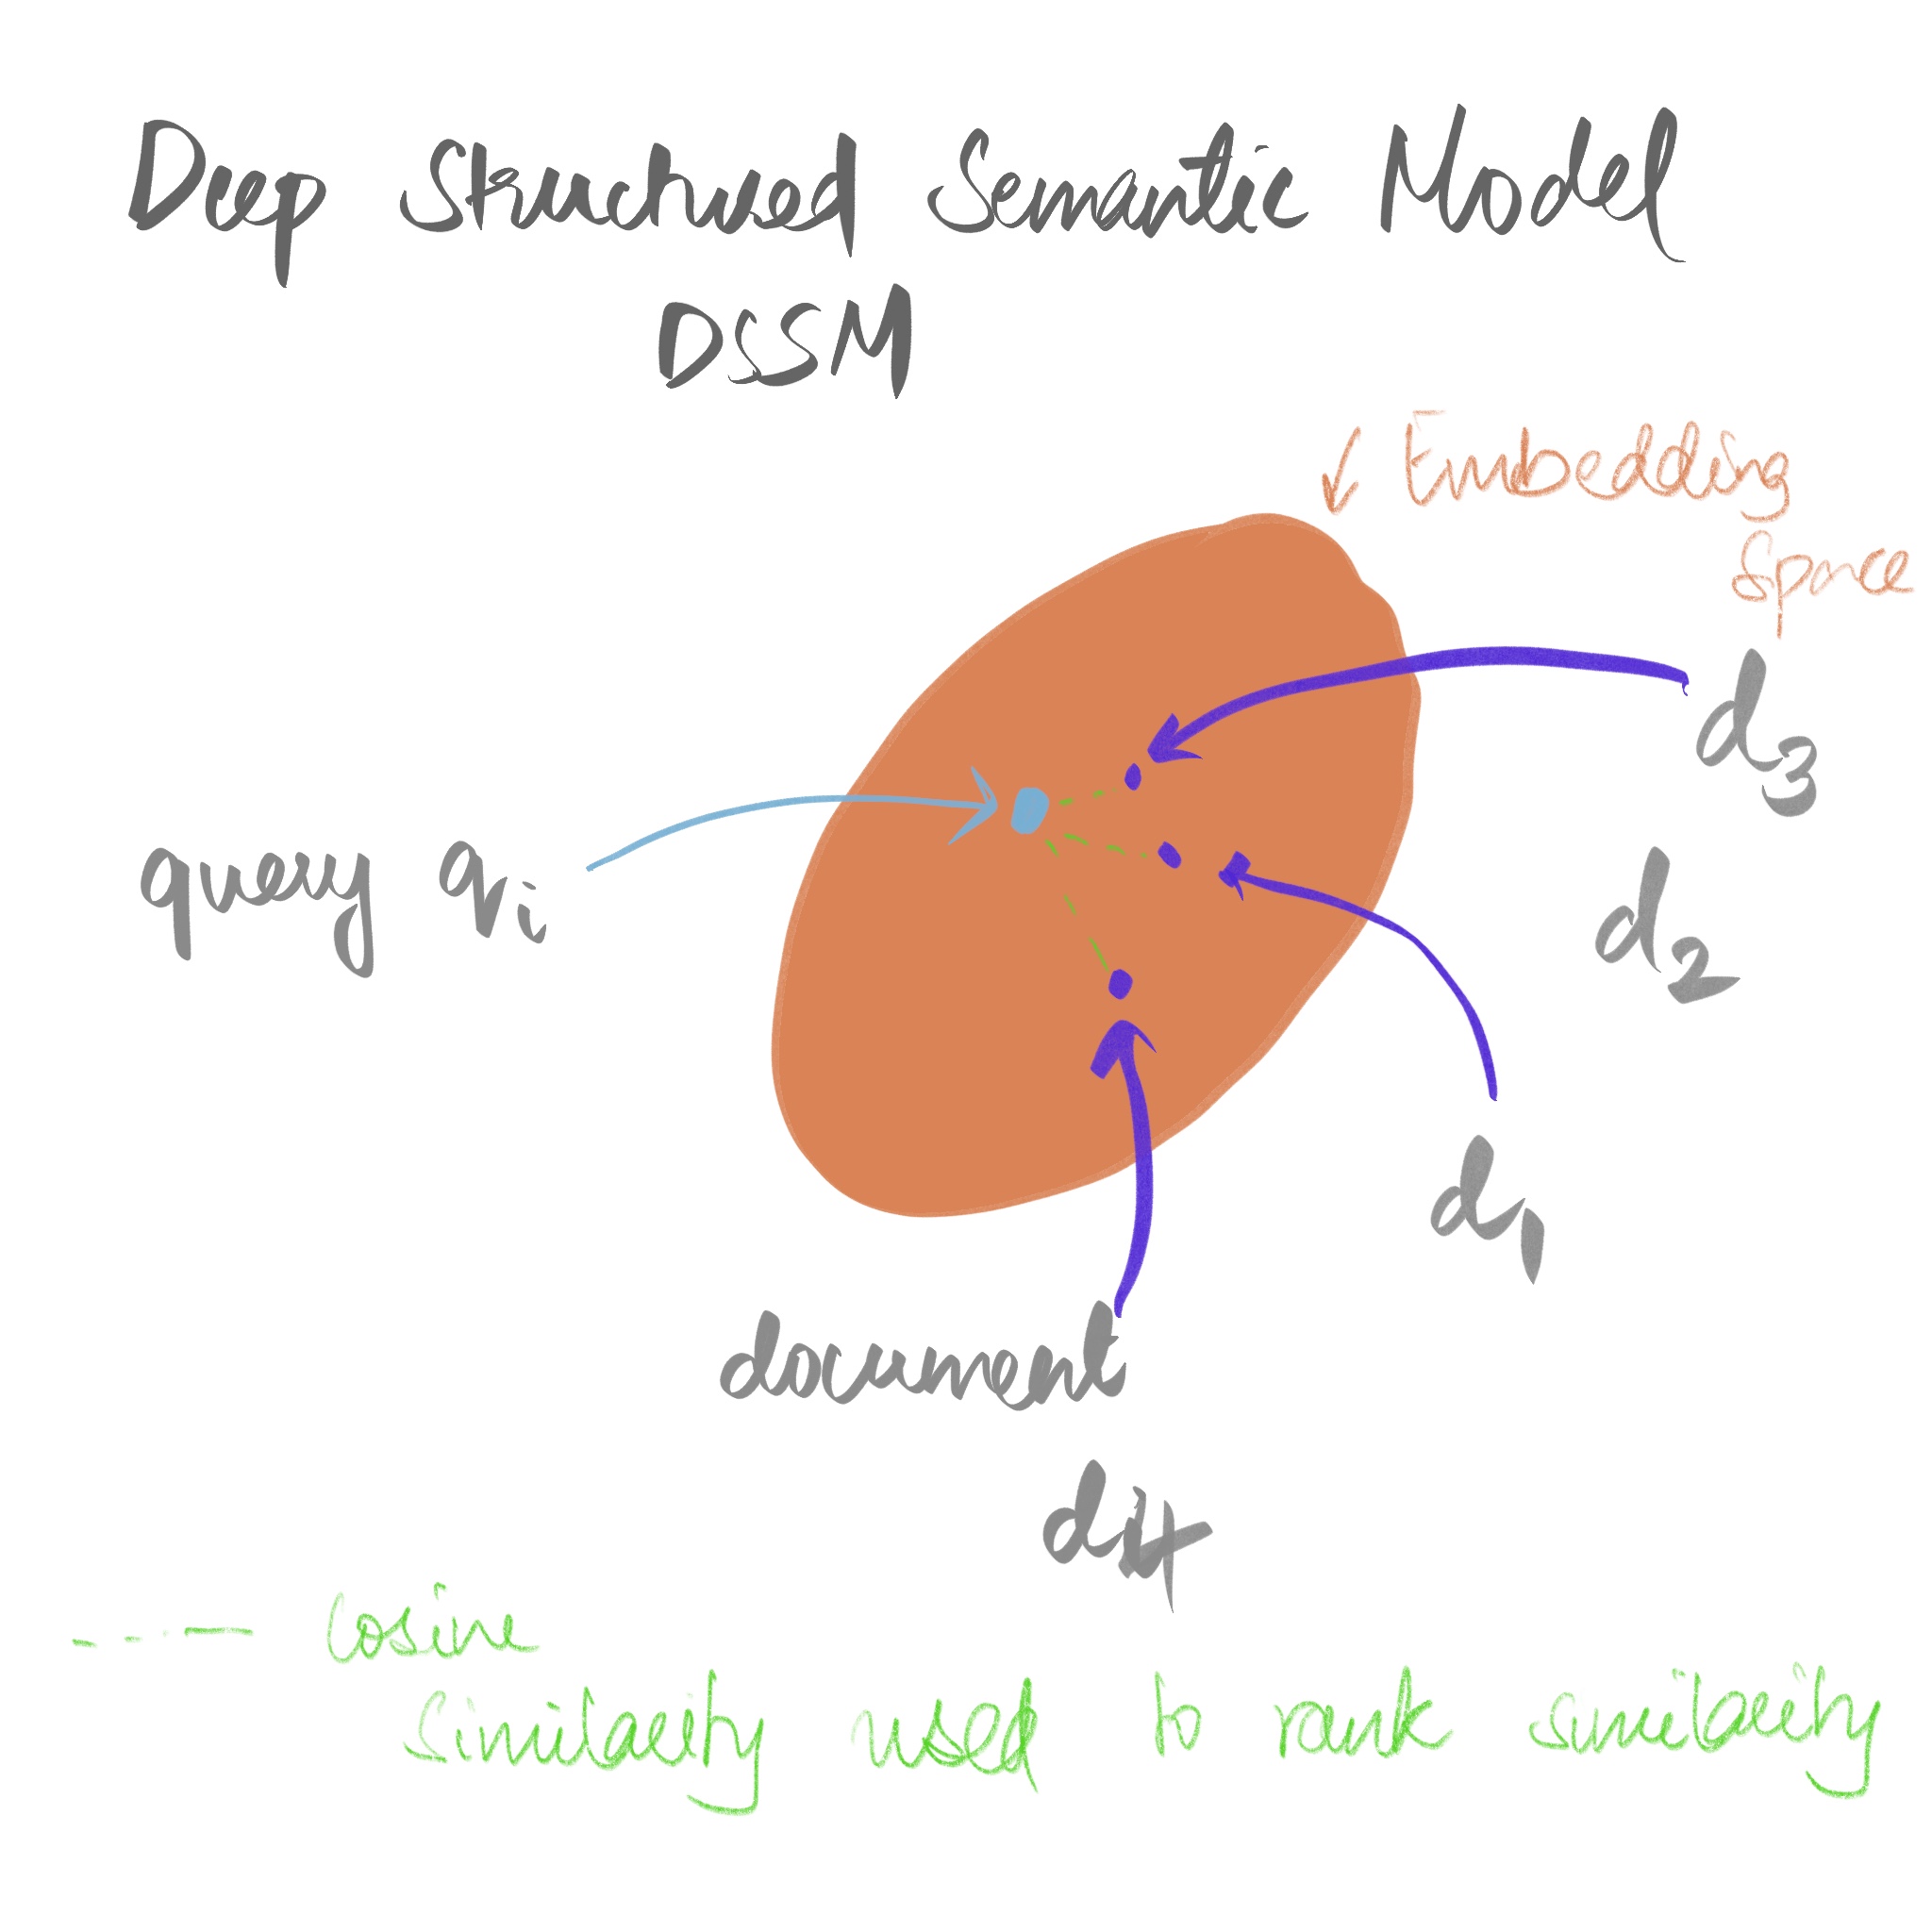 Deep Structured Semantic Model
DSSM
Embedding
Space
d3
query qi
d2
d1
document
di4
--- Cosine
Similarity used to rank similarity